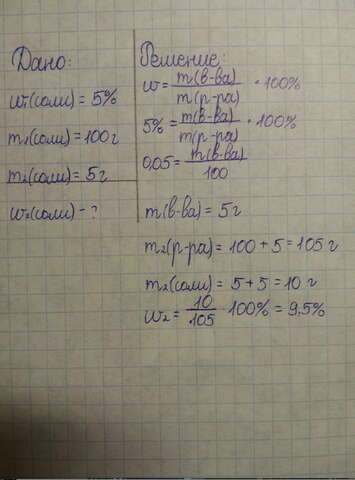 Дано:
w₁(соли) = 5%
m₁(соли) = 100 г
m₂(соли) = 5 г
w₂(соли) - ?
Решение:
w = m(в-ва) / m(р-ра) · 100%
5% = m(в-ва) / m(р-ра) · 100%
0,05 = m(в-ва) / 100
m(в-ва) = 5 г
m₂(р-ра) = 100 + 5 = 105 г
m₂(соли) = 5 + 5 = 10 г
w₂ = 10 / 105 · 100% = 9,5%